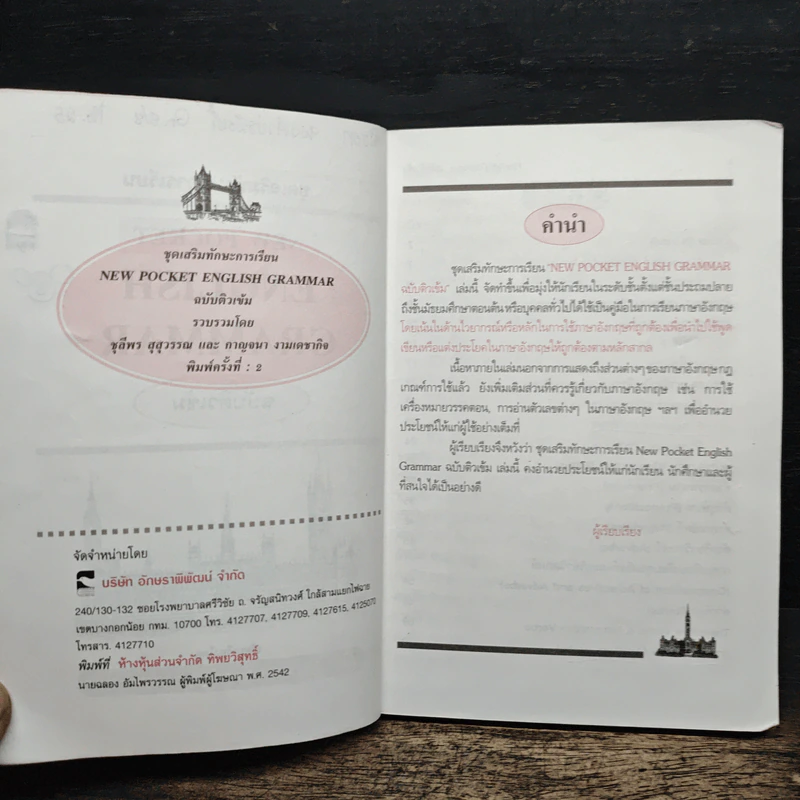 ชุดเสริมทักษะการเรียน
NEW POCKET ENGLISH GRAMMAR
ฉบับติวเข้ม
รวบรวมโดย
ชุลีพร สุสุวรรณ และ กาญจนา งามเดชากิจ
พิมพ์ครั้งที่ : 2
จัดจำหน่ายโดย
บริษัท อักษราพิพัฒน์ จำกัด
240/130-132 ซอยโรงพยาบาลศรีวิชัย ถ. จรัญสนิทวงศ์ ใกล้สามแยกไฟฉาย
เขตบางกอกน้อย กทม. 10700 โทร. 4127707, 4127709, 4127615, 4125070
โทรสาร. 4127710
พิมพ์ที่ ห้างหุ้นส่วนจำกัด ทิพยวิสุทธิ์
นายฉลอง อัมไพรวรรณ ผู้พิมพ์ผู้โฆษณา พ.ศ. 2542
คำนำ
ชุดเสริมทักษะการเรียน "NEW POCKET ENGLISH GRAMMAR
ฉบับติวเข้ม" เล่มนี้ จัดทำขึ้นเพื่อมุ่งให้นักเรียนในระดับชั้นตั้งแต่ชั้นประถมปลาย
ถึงชั้นมัธยมศึกษาตอนต้น หรือบุคคลทั่วไปได้ใช้เป็นคู่มือในการเรียนภาษาอังกฤษ
โดยเน้นในด้านไวยากรณ์หรือหลักในการใช้ภาษาอังกฤษที่ถูกต้องเพื่อนำไปใช้พูด
เขียนหรือแต่งประโยคในภาษาอังกฤษให้ถูกต้องตามหลักสากล
เนื้อหาภายในเล่มนอกจากการแสดงถึงส่วนต่างๆ ของภาษาอังกฤษ กฎ
เกณฑ์การใช้แล้ว ยังเพิ่มเติมส่วนที่ควรรู้เกี่ยวกับภาษาอังกฤษ เช่น การใช้
เครื่องหมายวรรคตอน, การอ่านตัวเลขต่างๆ ในภาษาอังกฤษ ฯลฯ เพื่ออำนวย
ประโยชน์ให้แก่ผู้ใช้อย่างเต็มที่
ผู้เรียบเรียงจึงหวังว่า ชุดเสริมทักษะการเรียน New Pocket English
Grammar ฉบับติวเข้ม เล่มนี้ คงอำนวยประโยชน์ให้แก่นักเรียน นักศึกษาและผู้
ที่สนใจได้เป็นอย่างดี
ผู้เรียบเรียง